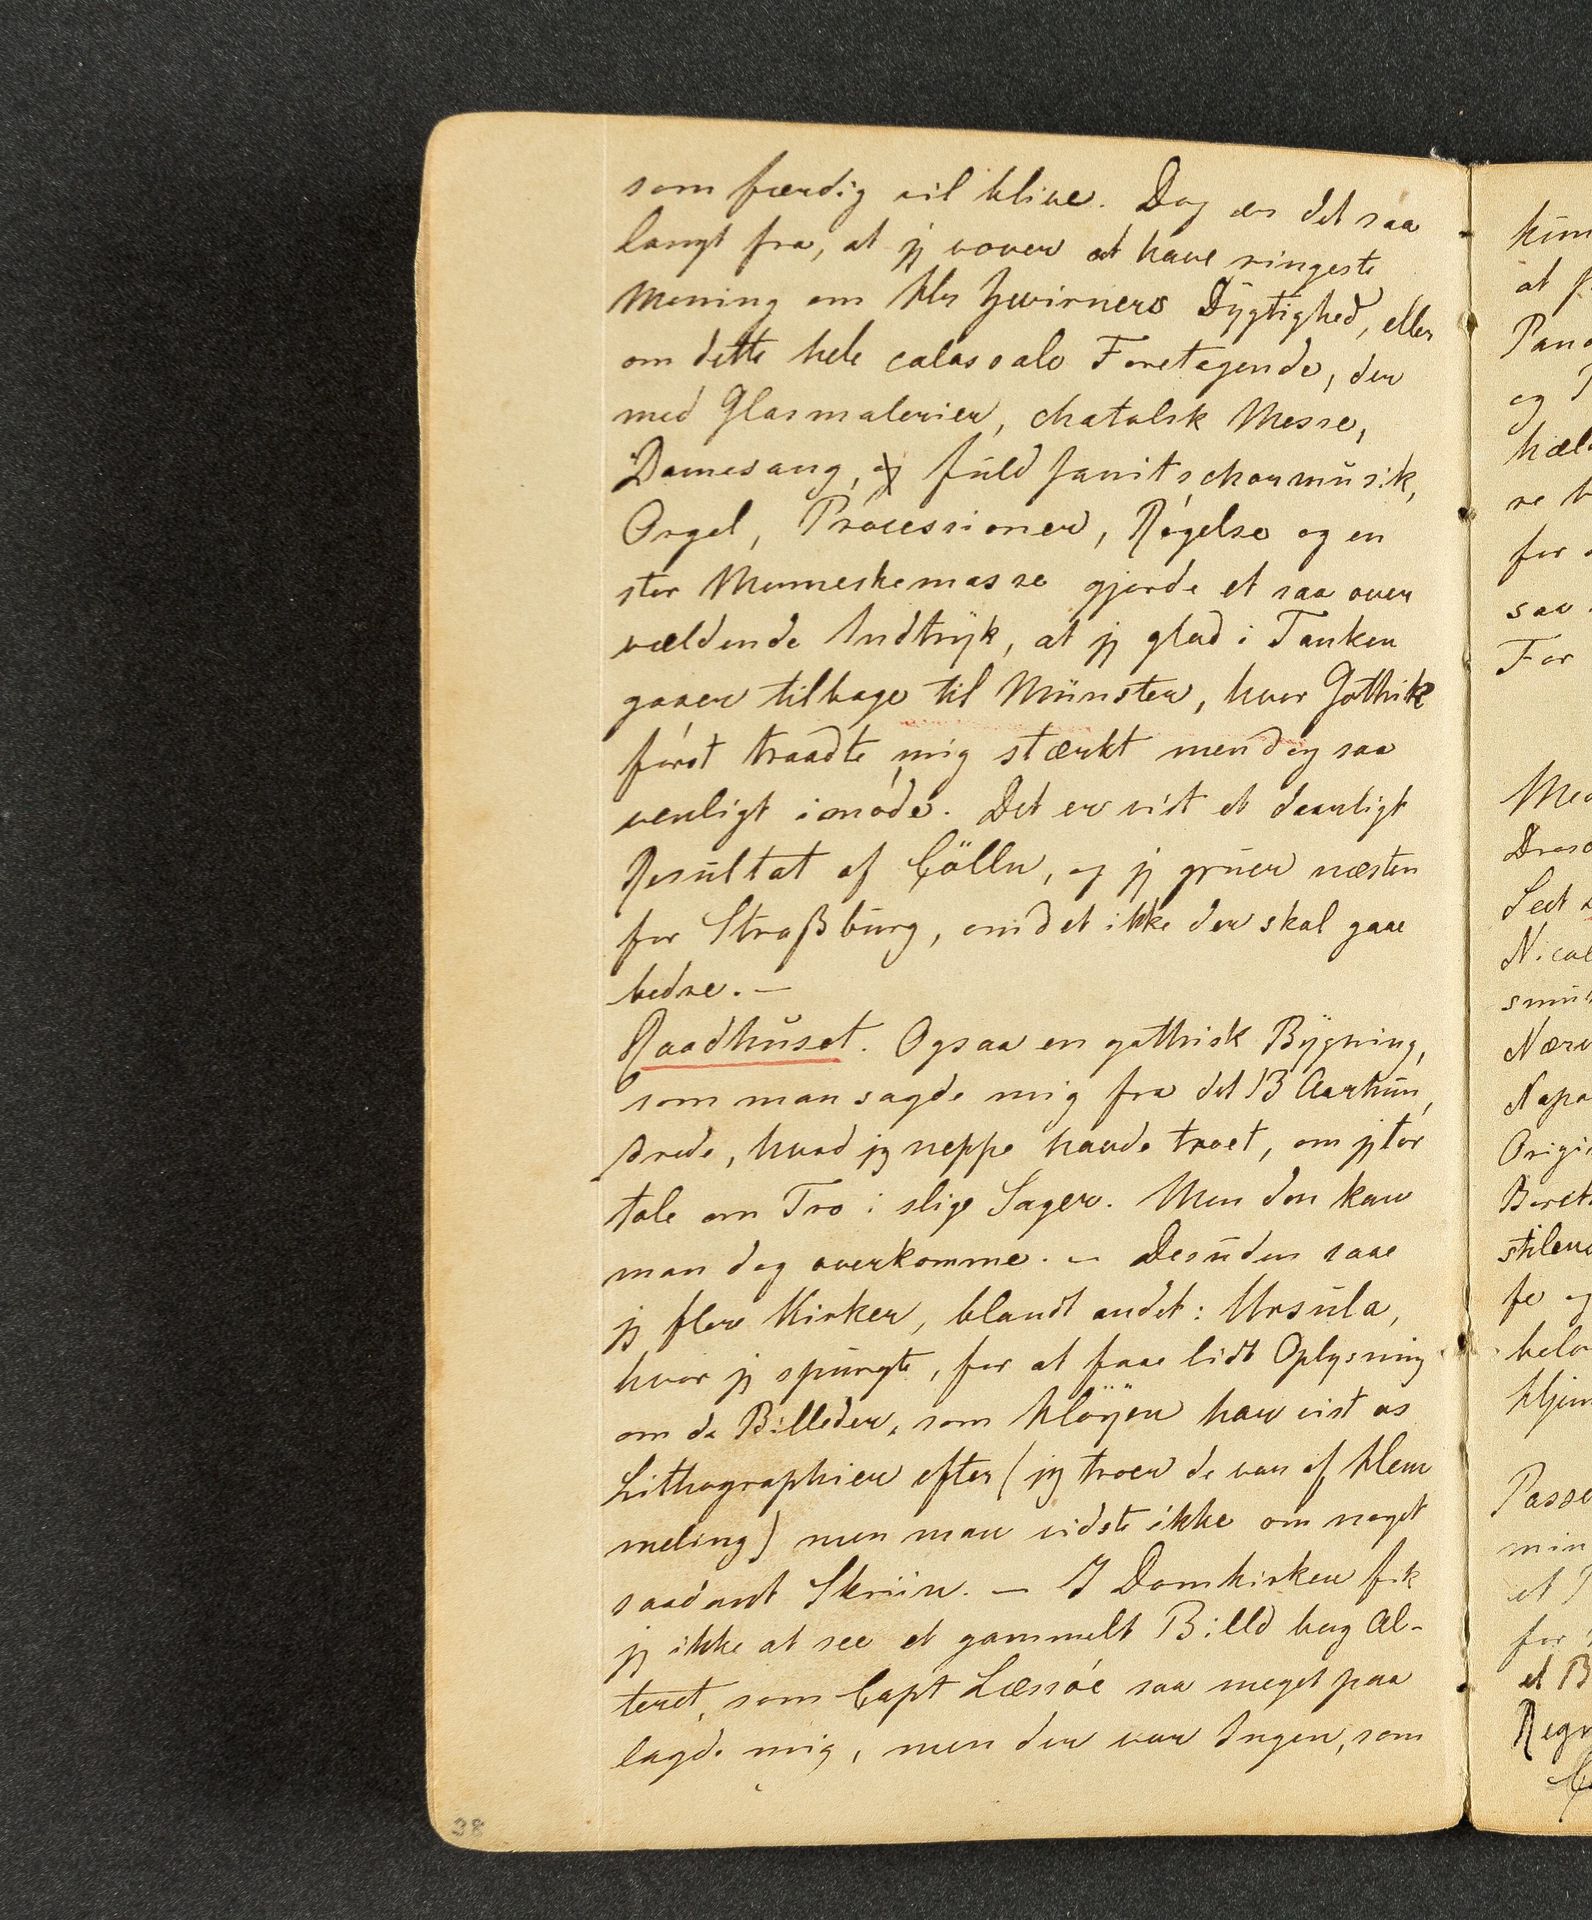 som færdig vil blive. Dog er det saa
langt fra, at jeg vover at have ringeste
Mening om Hr Zwirners Dygtighed, eller
om dette hele calossale Foretagende, der
med Glasmalerier, chatolsk Messe,
Damesang, og fuld Janitscharmusik,
Orgel, Processioner, Røgelse og en
stor Menneskemasse gjorde et saa over
vældende Indtryk, at jeg glad i Tanken
gaaer tilbage til Münster, hvor Gothik
først traadte mig stærkt men dog saa
venligt imøde. Det er vist et daarligt
Resultat af Cölln, og jeg gruer næsten
for Straßburg, om det ikke der skal gaae
bedre. —
Raadhuset. Ogsaa en gothisk Bygning,
som man sagde mig fra det 13 Aarhun,
drede, hvad jeg neppe havde troet, om jeg tør
tale om Tro i slige Sager. Men den kan
man dog overkomme. — Desuden saae
jeg flere Kirker, blandt andet: Ursula,
hvor jeg spurgte, for at faae lidt Oplysning
om de Billeder, som Höyen har vist os
Lithographier efter (jeg troer de var af Hem
meling) men man vidste ikke om noget
saadant Skriin. — I Domkirken fik
jeg ikke at see et gammelt Billd bag Al-
teret, som Capt Læssøe saa meget paa
lagde mig, men der var Ingen, som
38